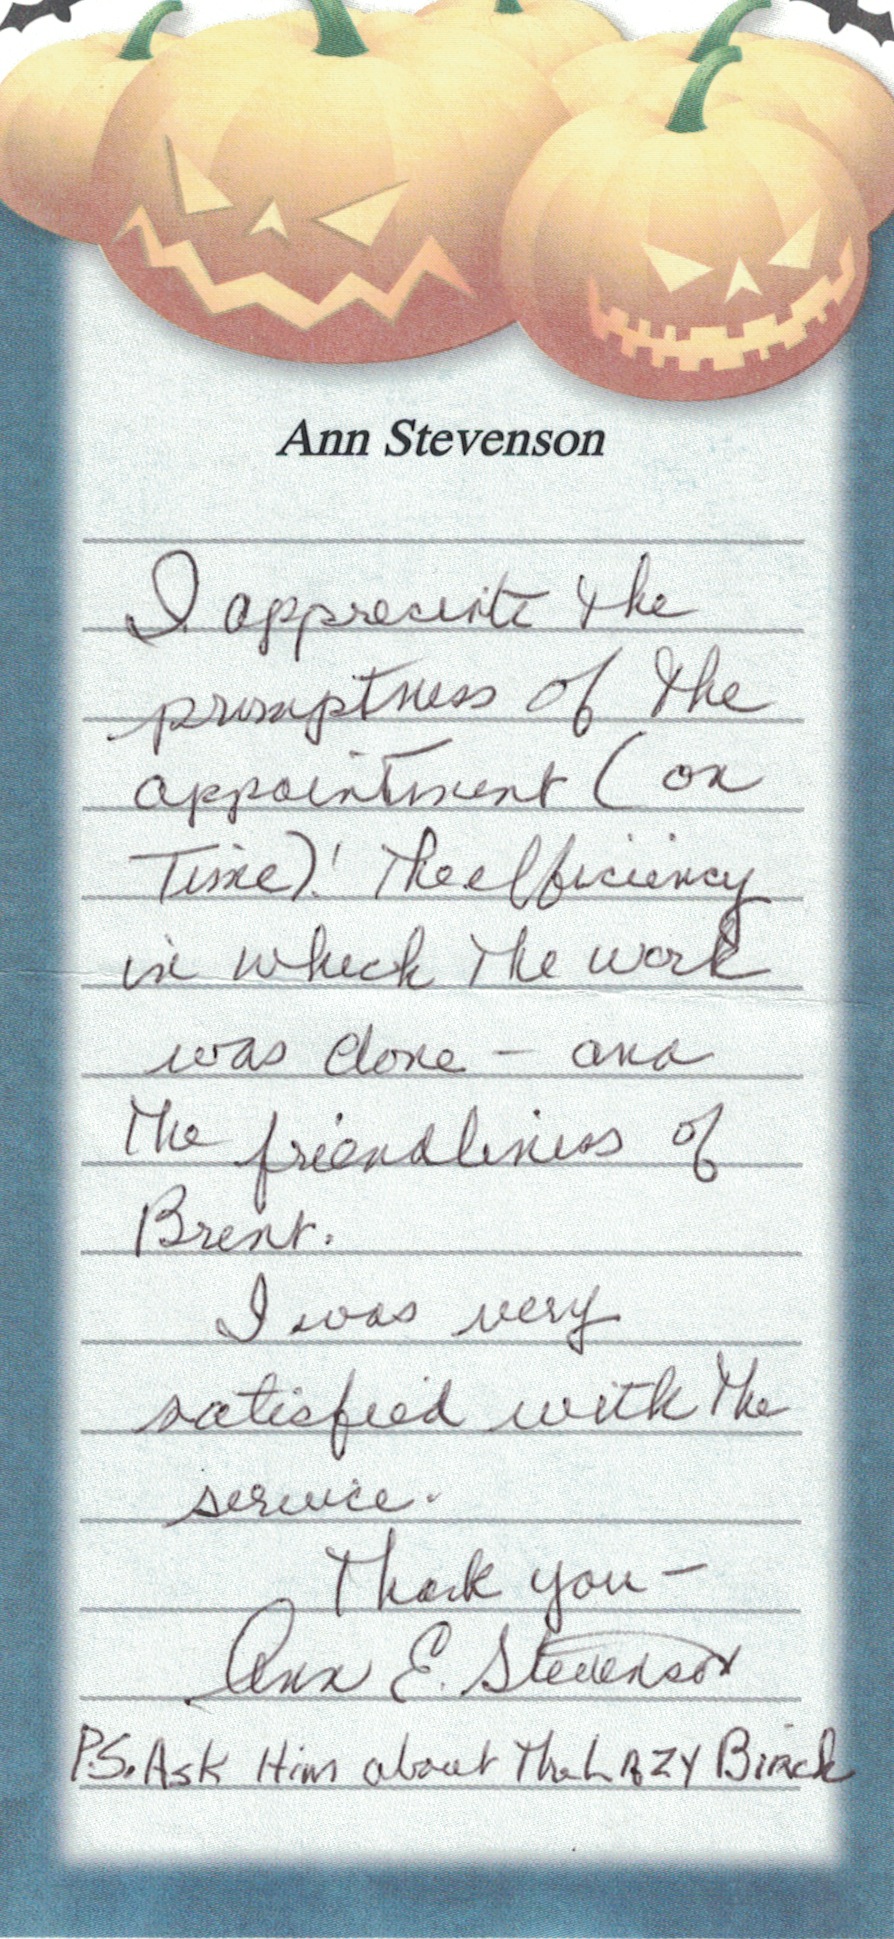 Ann Stevenson
I appreciate the
promptness of the
appointment (on
Time)! The efficiency
in which the work
was done – and
the friendliness of
Brent.
I was very
satisfied with the
service.
Thank you –
Ann E. Stevenson
P.S. Ask Him about The LAZY